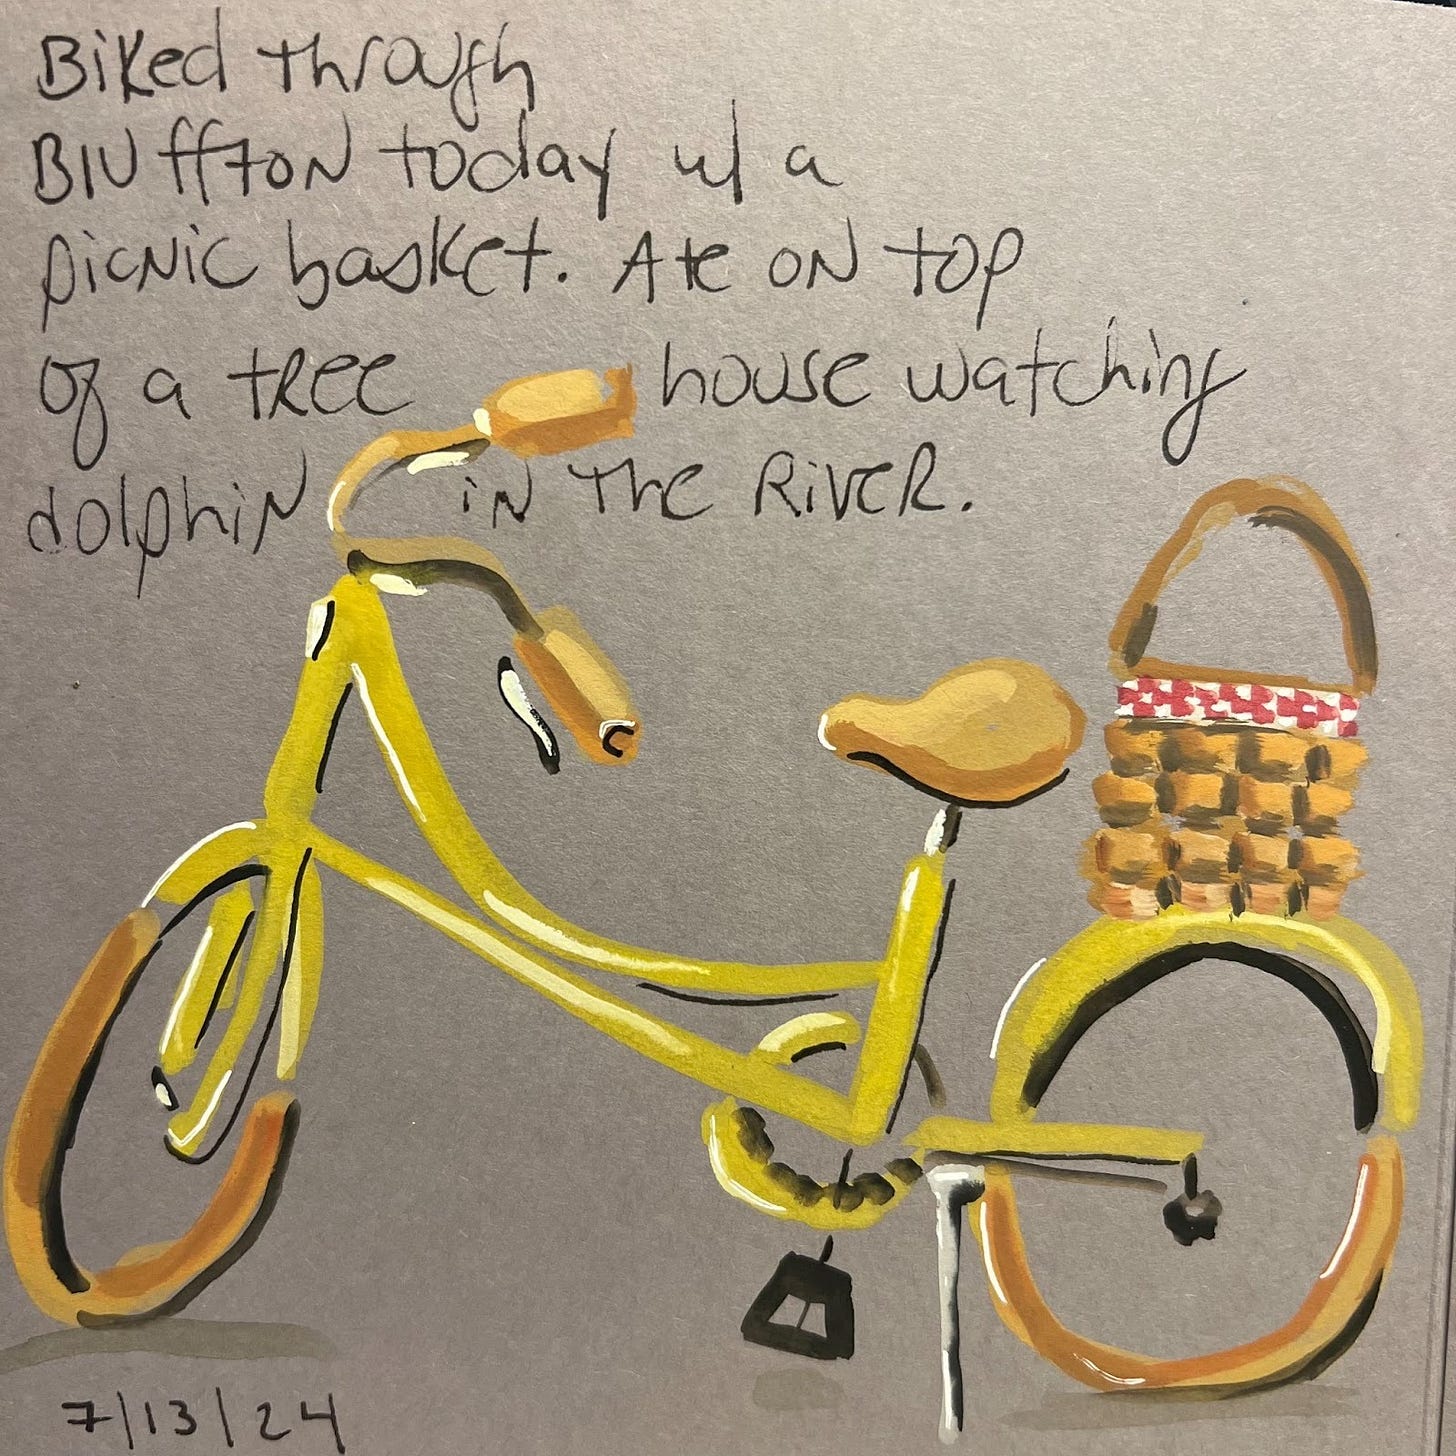 Biked through
Bluffton today w/ a
picnic basket. Ate on top
of a tree house watching
dolphin in the River.
7/13/24